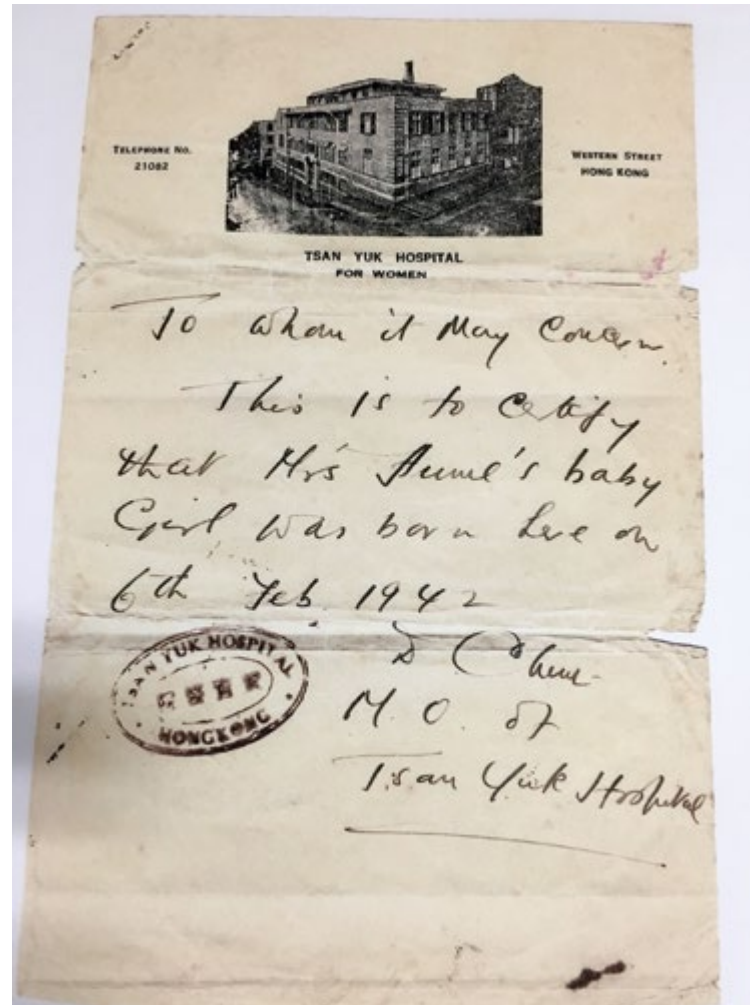 TELEPHONE No.
21082
WESTERN STREET
HONG KONG
TSAN YUK HOSPITAL
FOR WOMEN
To whom it May Concern.
This is to certify
that Mrs baby
Girl was born here on
6th Feb. 1942
M. O. of
Tsan Yuk Hospital
TSAN YUK HOSPITAL
HONGKONG